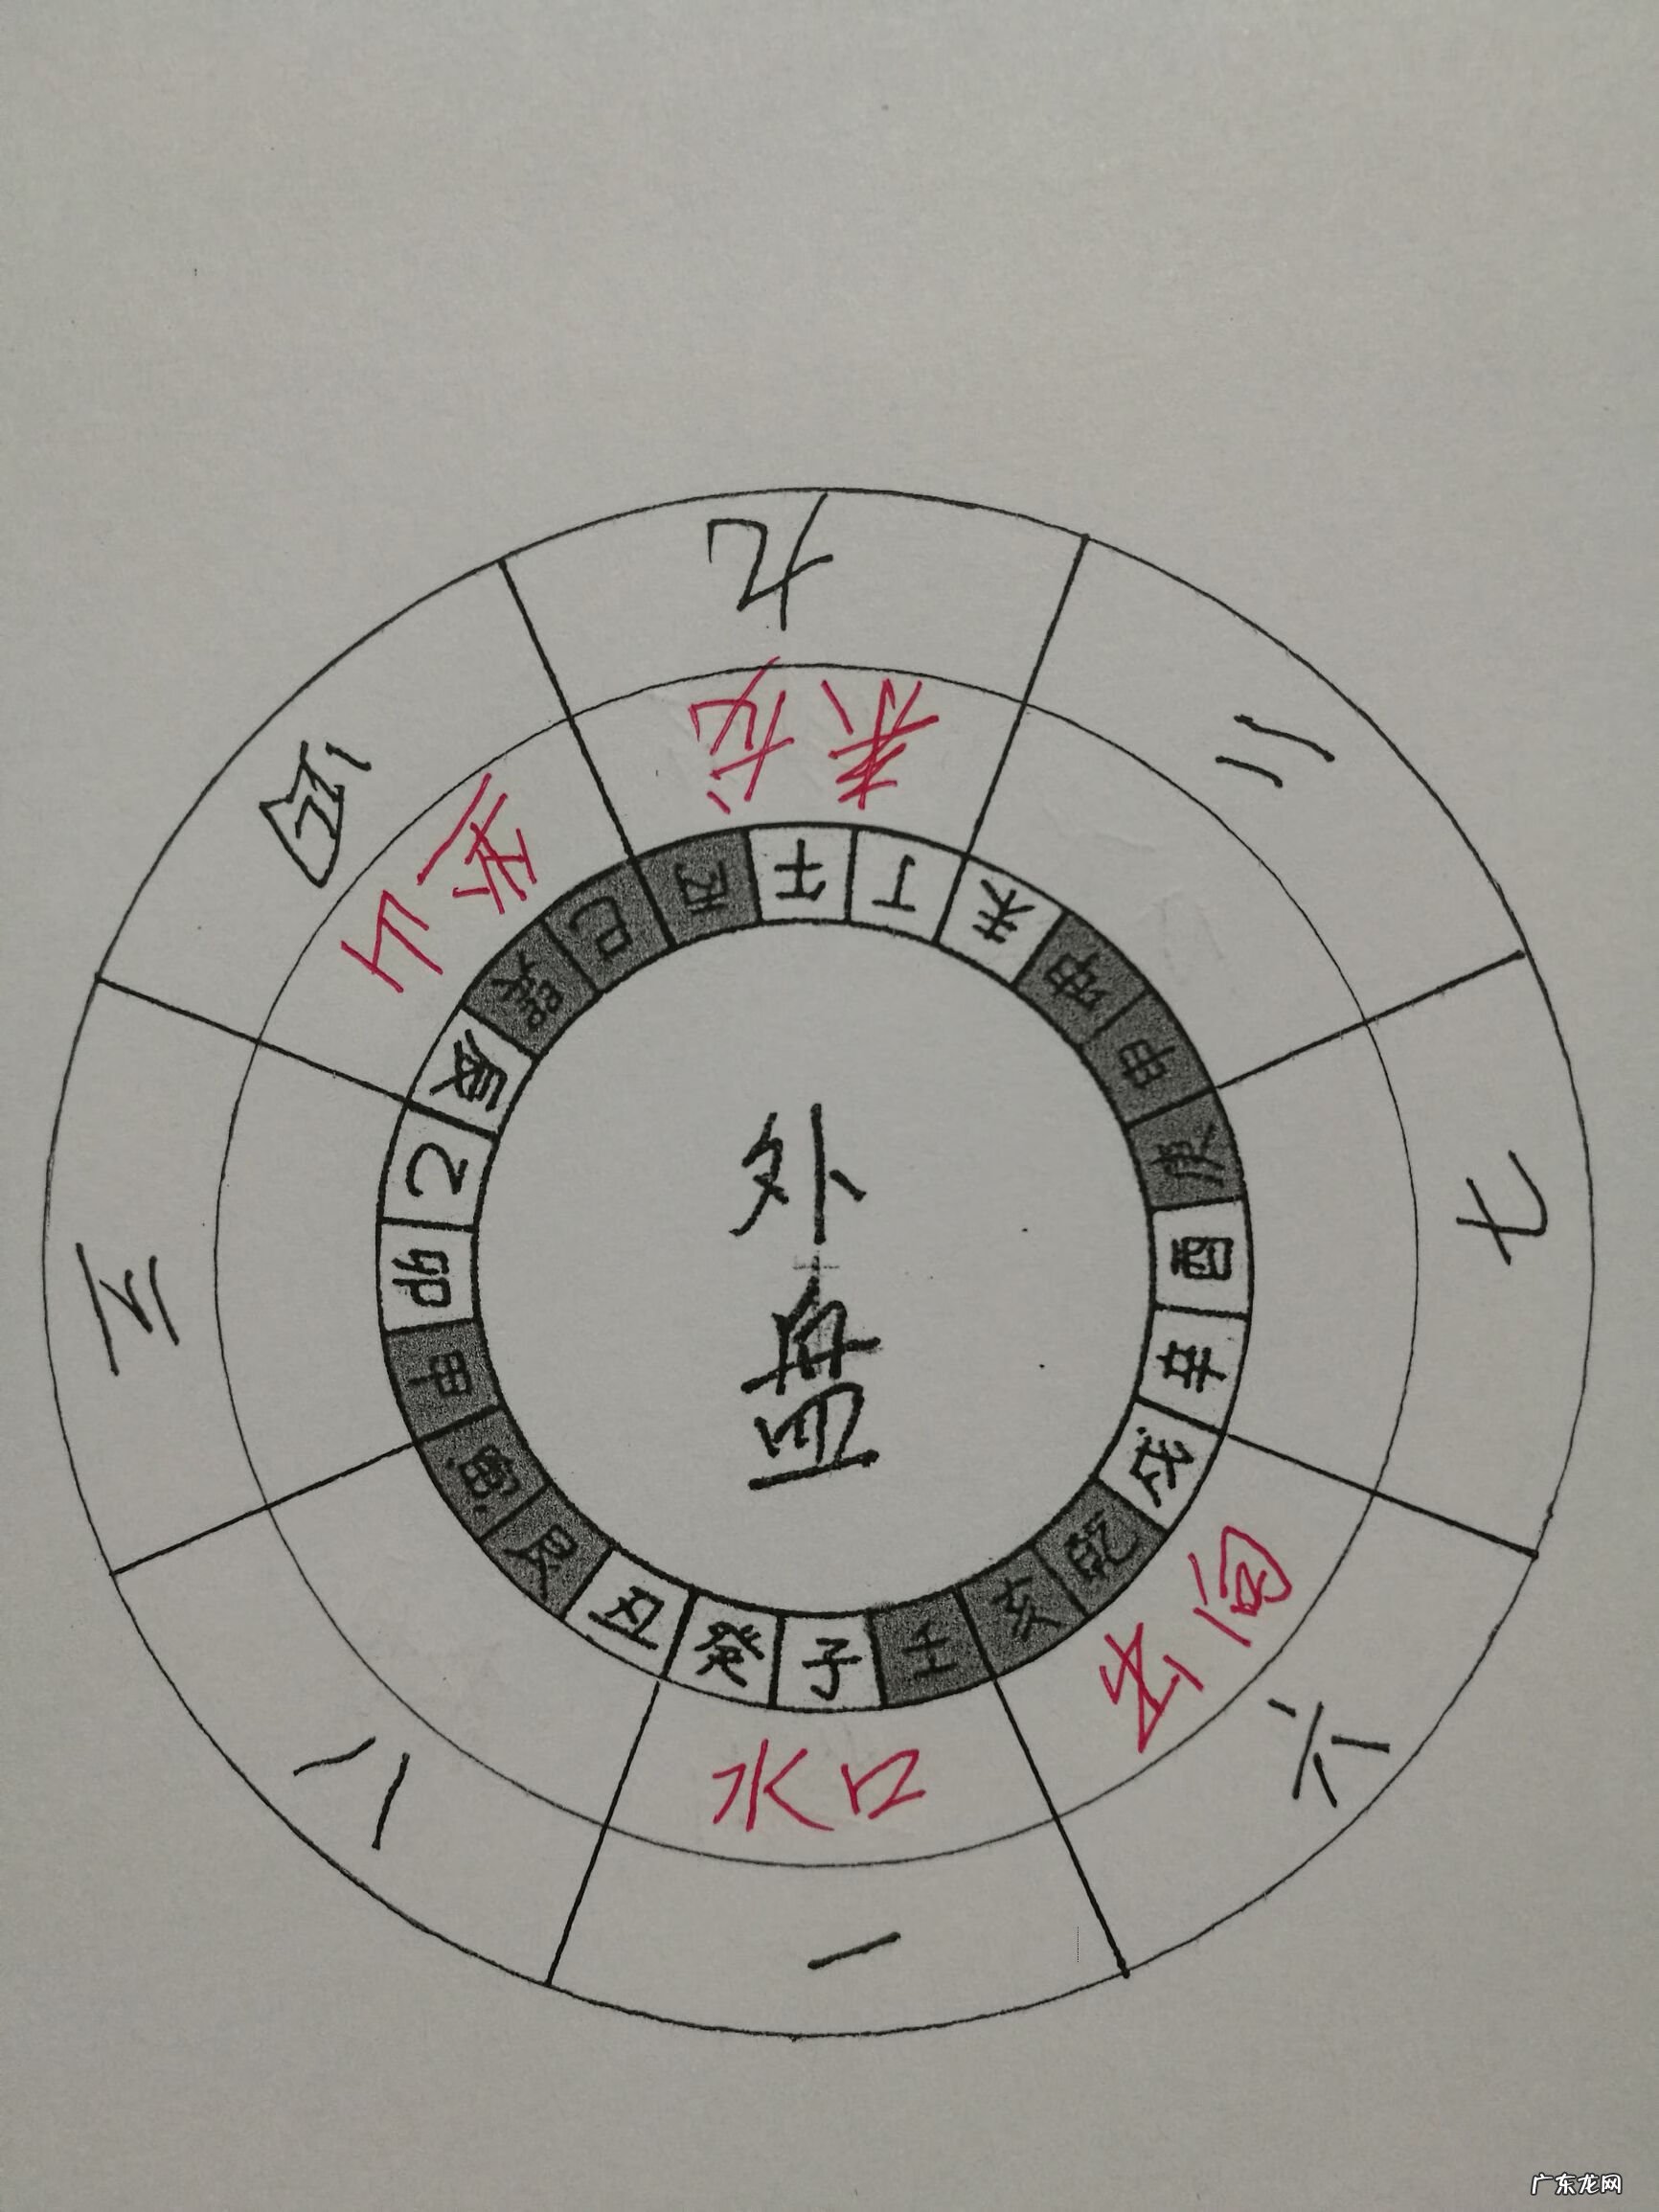 九
二
七
六
一
八
三
四
来龙
出向
水口
坐山
午
丁
未
坤
申
庚
酉
辛
戌
乾
亥
壬
子
癸
丑
艮
寅
甲
卯
乙
辰
巽
巳
丙
外
盘
广东龙网